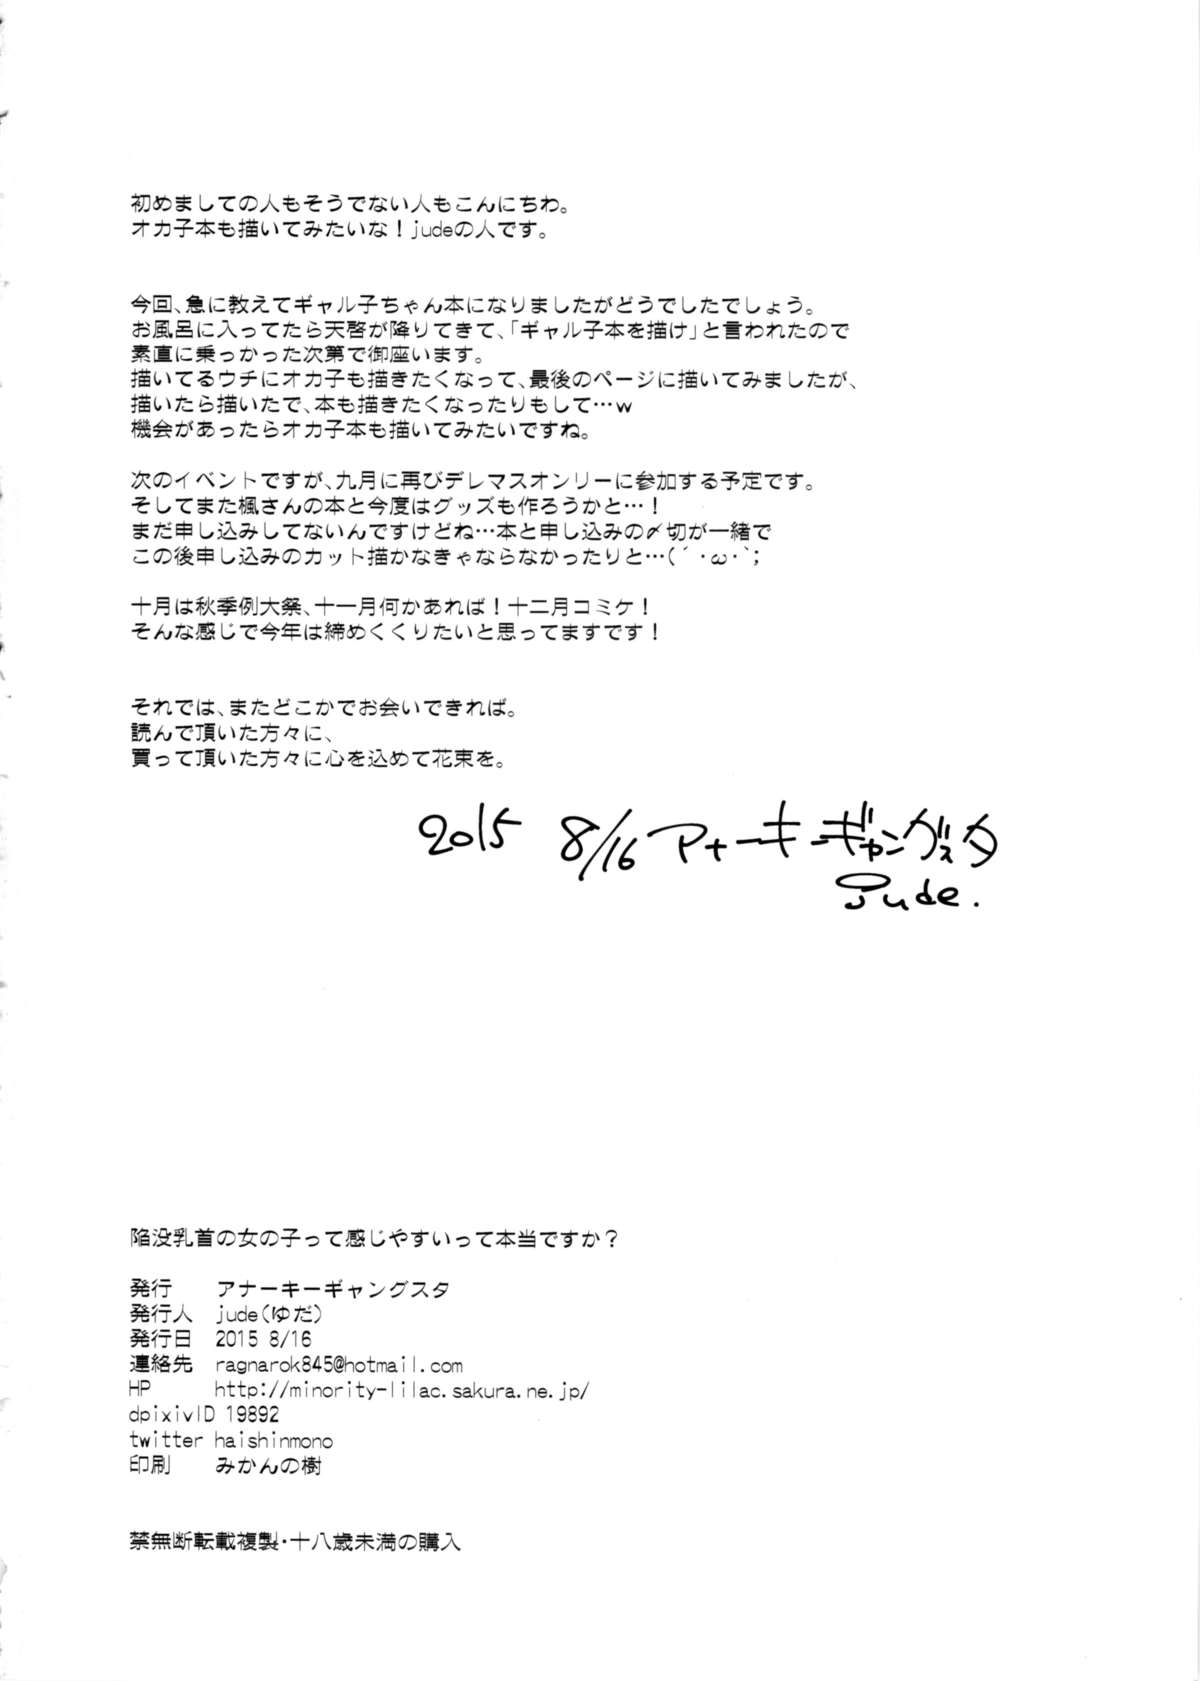 初めましての人もそうでない人もこんにちわ。
オカ子本も描いてみたいな！judeの人です。
今回、急に教えてギャル子ちゃん本になりましたがどうでしたでしょう。
お風呂に入ってたら天啓が降りてきて、「ギャル子本を描け」と言われたので
素直に乗っかった次第で御座います。
描いてるウチにオカ子も描きたくなって、最後のページに描いてみましたが、
描いたら描いたで、本も描きたくなったりもして…w
機会があったらオカ子本も描いてみたいですね。
次のイベントですが、九月に再びデレマスオンリーに参加する予定です。
そしてまた楓さんの本と今度はグッズも作ろうかと…！
まだ申し込みしてないんですけどね…本と申し込みの〆切が一緒で
この後申し込みのカット描かなきゃならなかったりと…(´・ω・`;
十月は秋季例大祭、十一月何かあれば！十二月コミケ！
そんな感じで今年は締めくくりたいと思ってますです！
それでは、またどこかでお会いできれば。
読んで頂いた方々に、
買って頂いた方々に心を込めて花束を。
2015 8/16 アナーキーギャングスタ
jude.
陥没乳首の女の子って感じやすいって本当ですか？
発行 アナーキーギャングスタ
発行人 jude(ゆだ)
発行日 2015 8/16
連絡先 ragnarok845@hotmail.com
HP http://minority-lilac.sakura.ne.jp/
dpixivID 19892
twitter haishinmono
印刷 みかんの樹
禁無断転載複製・十八歳未満の購入